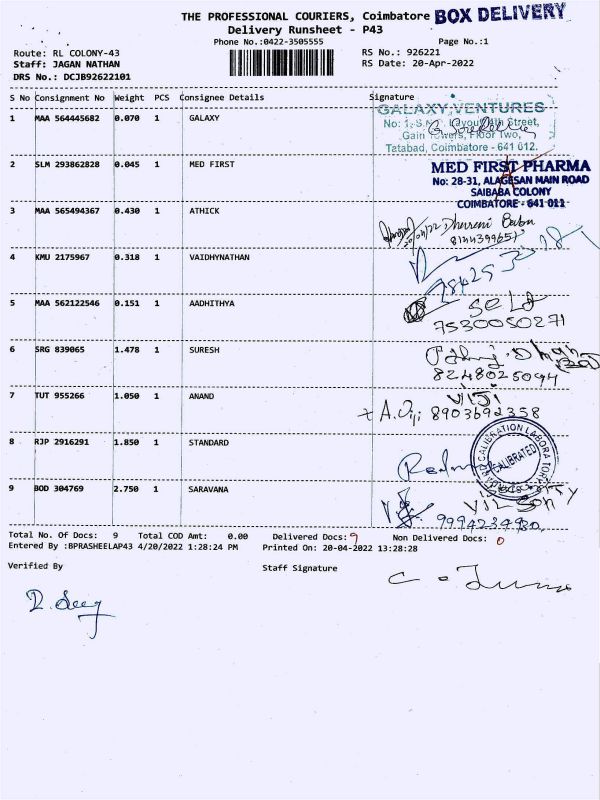 THE PROFESSIONAL COURIERS, Coimbatore BOX DELIVERY
Delivery Runsheet - P43
Phone No.:0422-3505555 Page No.:1
Route: RL COLONY-43 RS No.: 926221
Staff: JAGAN NATHAN RS Date: 20-Apr-2022
DRS No.: DCJB92622101
S No Consignment No Weight PCS Consignee Details Signature
1 MAA 564445682 0.070 1 GALAXY
GALAXY VENTURES
Layout 4th Street,
Gain Towers, Floor Two,
Tatabad, Coimbatore - 641 012.
2 SLM 293862828 0.045 1 MED FIRST
MED FIRST PHARMA
No: 28-31, ALAGESAN MAIN ROAD
SAIBABA COLONY
COIMBATORE - 641 011
3 MAA 565494367 0.430 1 ATHICK
Babu
4 KMU 2175967 0.318 1 VAIDHYNATHAN
5 MAA 562122546 0.151 1 AADHITHYA
Self
7530050271
6 SRG 839065 1.478 1 SURESH
8248025094
7 TUT 955266 1.050 1 ANAND
VIJI
A. Viji 8903692358
8 RJP 2916291 1.850 1 STANDARD
CALIBRATION LABORATORY
CALIBRATED
9 BOD 304769 2.750 1 SARAVANA
9994234980
Total No. Of Docs: 9 Total COD Amt: 0.00 Delivered Docs: 9 Non Delivered Docs: 0
Entered By :BPRASHEELAP43 4/20/2022 1:28:24 PM Printed On: 20-04-2022 13:28:28
Verified By Staff Signature